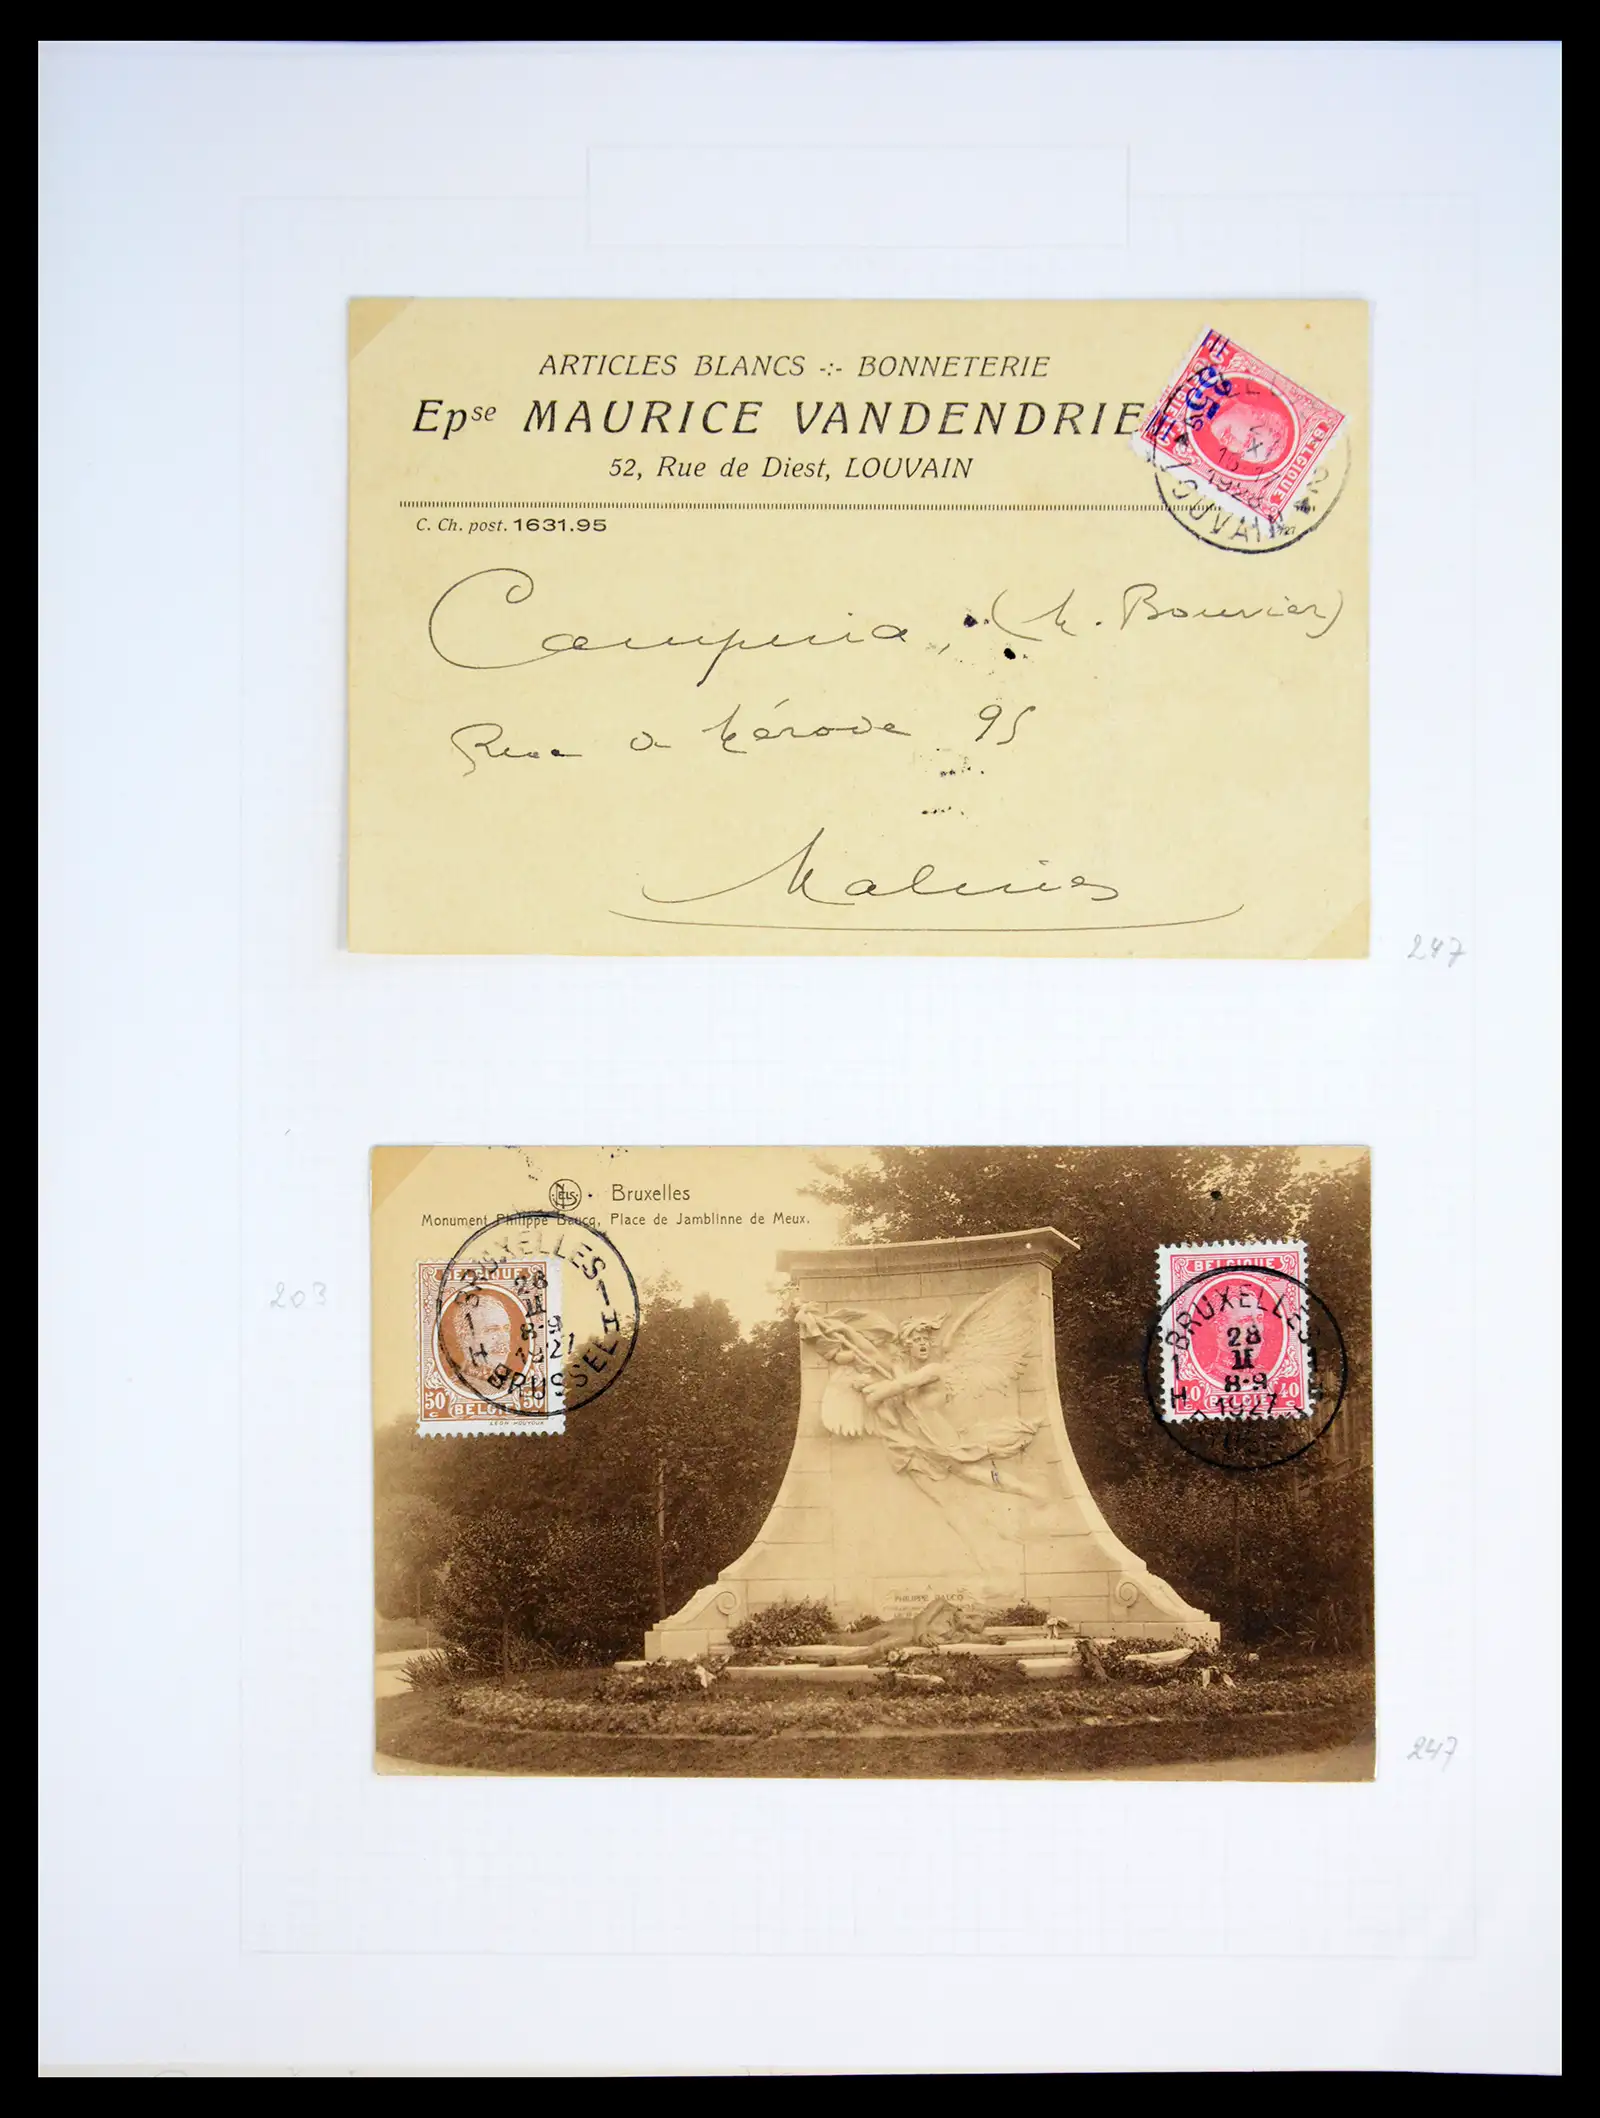 ARTICLES BLANCS -:- BONNETERIE
Epse MAURICE VANDENDRIE
52, Rue de Diest, LOUVAIN
C. Ch. post. 1631.95
BELGIQUE
35c
1928
LOUVAIN 2
Campinia, (M. Bouvier)
Rue de Mérode 95
Malines
247
ELS. Bruxelles
Monument Philippe Baucq, Place de Jamblinne de Meux.
BELGIQUE
50 BELGIË 50
LÉON HOUYOUX
BRUXELLES 1
28
II
8-9
1927
BRUSSEL
H H
203
BELGIQUE
40 BELGIE 40
BRUXELLES 1
28
II
8-9
1927
H
A
PHILIPPE BAUCQ
247